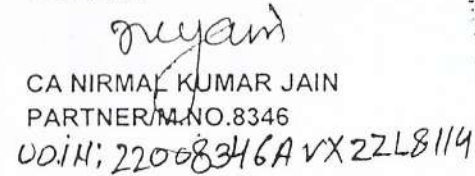 CA NIRMAL KUMAR JAIN
PARTNER/M.NO.8346
UDiN: 22008346AVXZZL8114